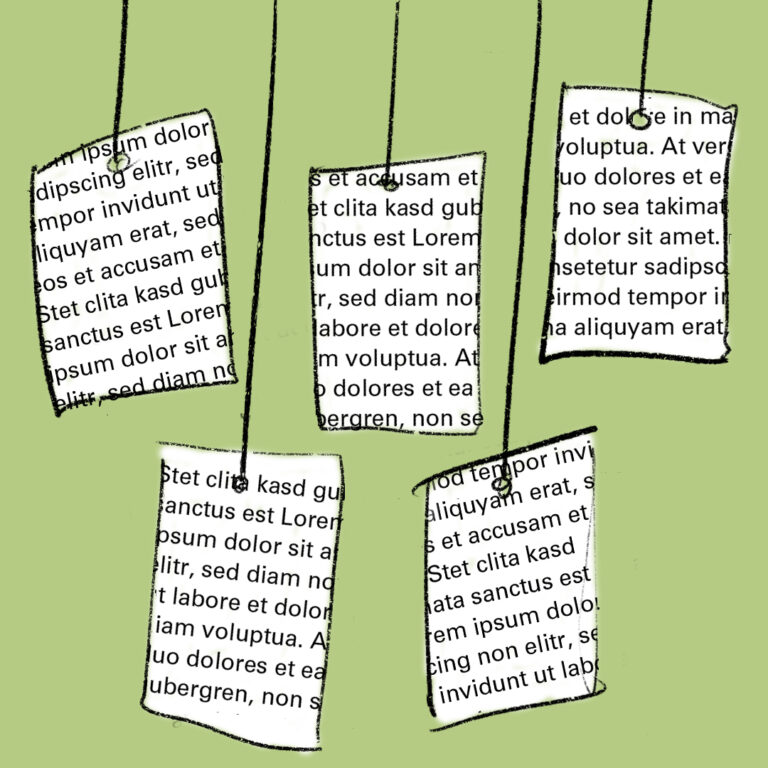 m ipsum dolor
dipscing elitr, sed
mpor invidunt ut
liquyam erat, sed
eos et accusam et
Stet clita kasd gub
sanctus est Lorem
ipsum dolor sit a
elitr, sed diam no
s et accusam et
et clita kasd gub
nctus est Lorem
um dolor sit am
tr, sed diam non
labore et dolore
m voluptua. At
o dolores et ea
bergren, non se
et dolore in ma
voluptua. At ver
uo dolores et ea
, no sea takimat
dolor sit amet.
nsetetur sadipsc
eirmod tempor in
na aliquyam erat,
Stet clita kasd gu
sanctus est Lorem
psum dolor sit a
elitr, sed diam no
t labore et dolor
iam voluptua. A
uo dolores et ea
ubergren, non s
od tempor invi
aliquyam erat, s
s et accusam et
Stet clita kasd
ata sanctus est
rem ipsum dolo
cing non elitr, se
invidunt ut labo